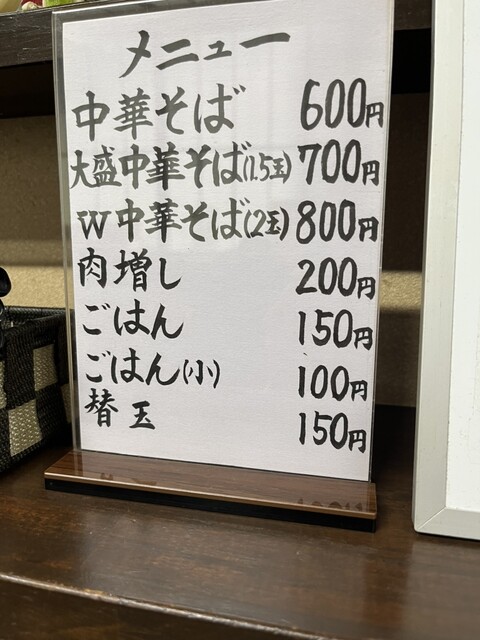 メニュー
中華そば 600円
大盛中華そば(1.5玉) 700円
W中華そば(2玉) 800円
肉増し 200円
ごはん 150円
ごはん(小) 100円
替玉 150円